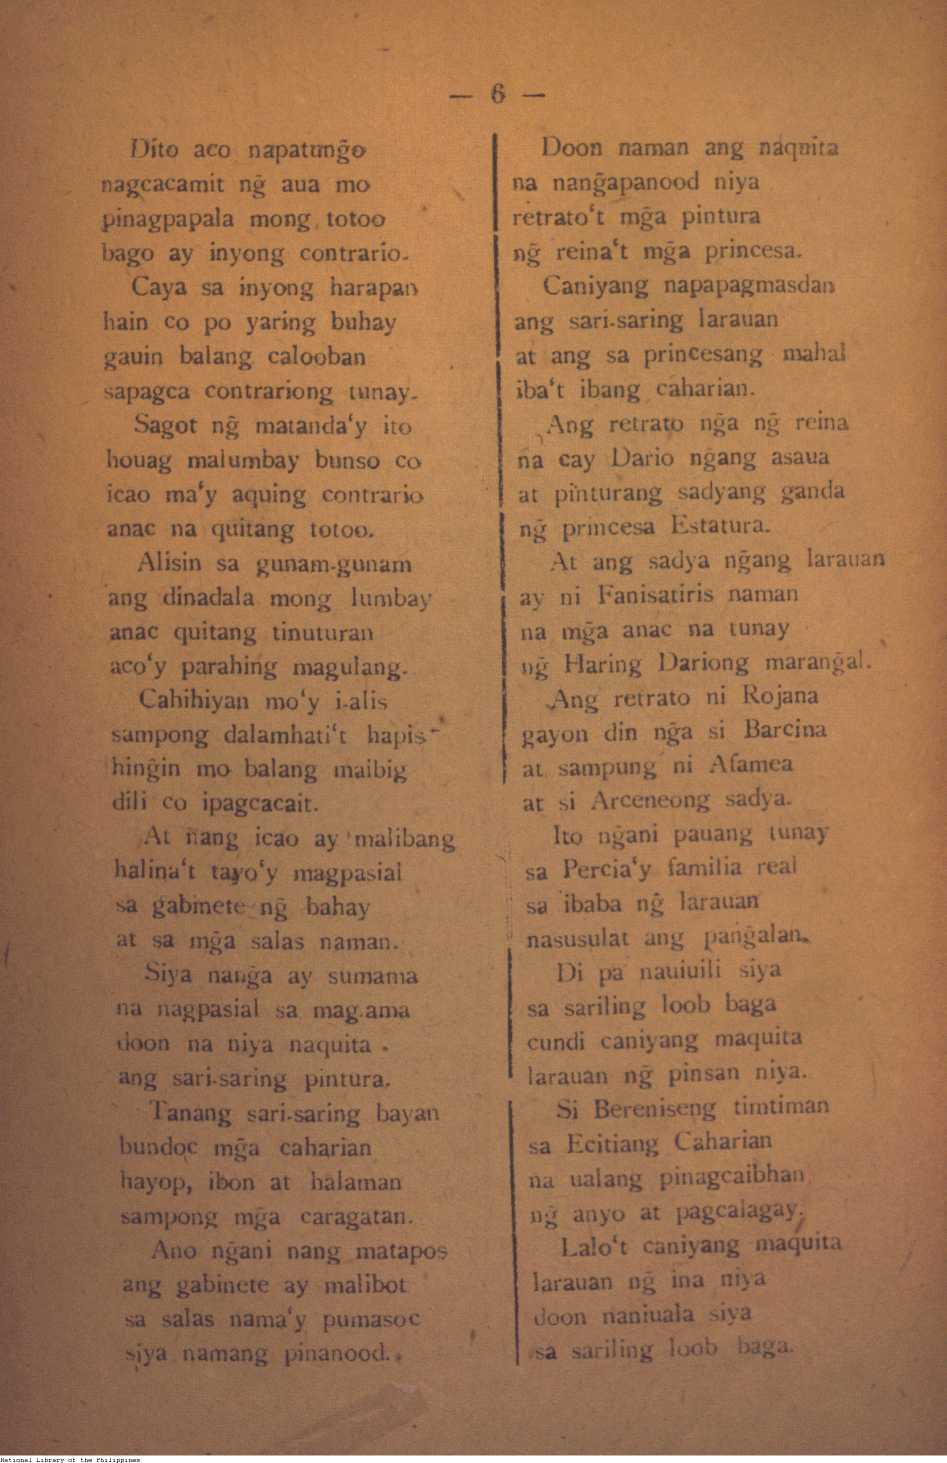 — 6 —
Dito aco napatung̃o
nagcacamit ng̃ aua mo
pinagpapala mong totoo
bago ay inyong contrario.
Caya sa inyong harapan
hain co po yaring buhay
gauin balang calooban
sapagca contrariong tunay.
Sagot ng̃ matanda‘y ito
houag malumbay bunso co
icao ma‘y aquing contrario
anac na quitang totoo.
Alisin sa gunam-gunam
ang dinadala mong lumbay
anac quitang tinuturan
aco‘y parahing magulang.
Cahihiyan mo‘y i-alis
sampong dalamhati‘t hapis
hing̃in mo balang maibig
dili co ipagcacait.
At nang icao ay malibang
halina‘t tayo‘y magpasial
sa gabinete ng̃ bahay
at sa mg̃a salas naman.
Siya nang̃a ay sumama
na nagpasial sa mag-ama
doon na niya naquita
ang sari-saring pintura.
Tanang sari-saring bayan
bundoc mg̃a caharian
hayop, ibon at halaman
sampong mg̃a caragatan.
Ano ng̃ani nang matapos
ang gabinete ay malibot
sa salas nama‘y pumasoc
siya namang pinanood.
Doon naman ang naquita
na nang̃apanood niya
retrato‘t mg̃a pintura
ng̃ reina‘t mg̃a princesa.
Caniyang napapagmasdan
ang sari-saring larauan
at ang sa princesang mahal
iba‘t ibang caharian.
Ang retrato ng̃a ng̃ reina
na cay Dario ng̃ang asaua
at pinturang sadyang ganda
ng̃ princesa Estatura.
At ang sadya ng̃ang larauan
ay ni Fanisatiris naman
na mg̃a anac na tunay
ng̃ Haring Dariong marang̃al.
Ang retrato ni Rojana
gayon din ng̃a si Barcina
at sampung ni Afamea
at si Arceneong sadya.
Ito ng̃ani pauang tunay
sa Percia‘y familia real
sa ibaba ng̃ larauan
nasusulat ang pang̃alan.
Di pa nauiuili siya
sa sariling loob baga
cundi caniyang maquita
larauan ng̃ pinsan niya.
Si Bereniseng timtiman
sa Ecitiang Caharian
na ualang pinagcaibhan
ng̃ anyo at pagcalagay.
Lalo‘t caniyang maquita
larauan ng̃ ina niya
doon naniuala siya
sa sariling loob baga.
National Library of the Philippines